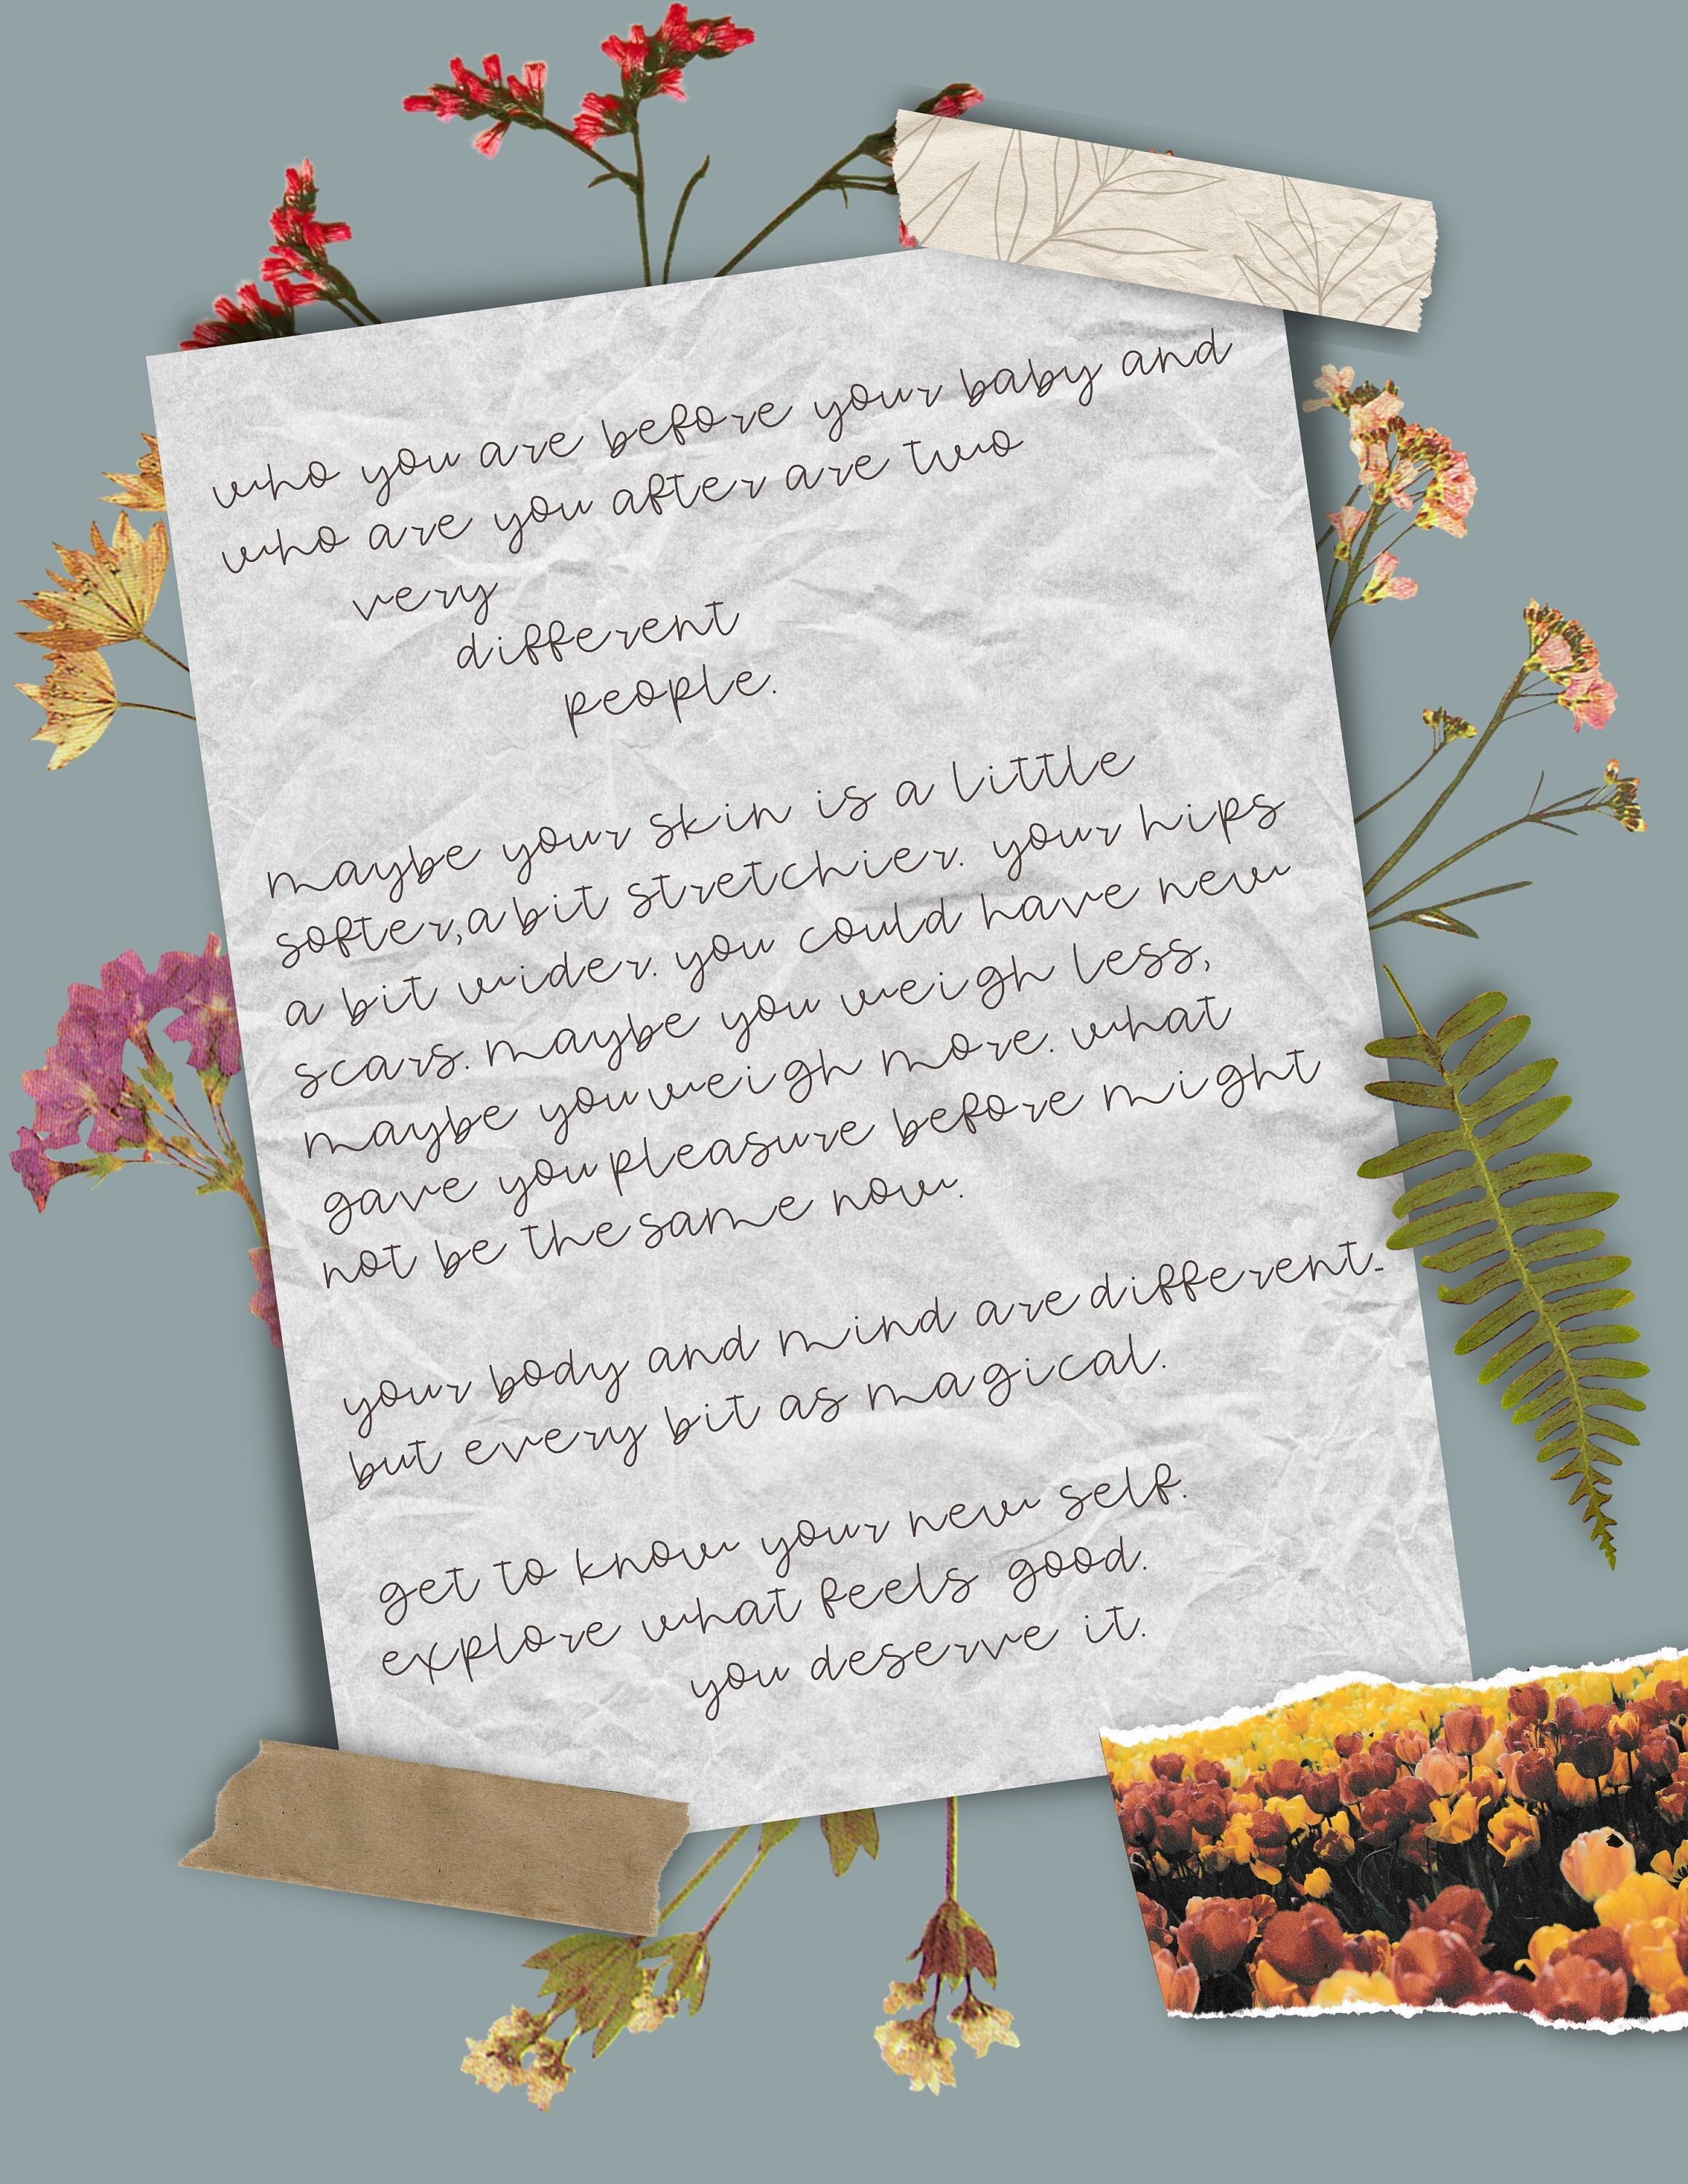 who you are before your baby and
who are you after are two
very
different
people.
maybe your skin is a little
softer, a bit stretchier. your hips
a bit wider. you could have new
scars. maybe you weigh less,
maybe you weigh more. what
gave you pleasure before might
not be the same now.
your body and mind are different..
but every bit as magical.
get to know your new self.
explore what feels good.
you deserve it.